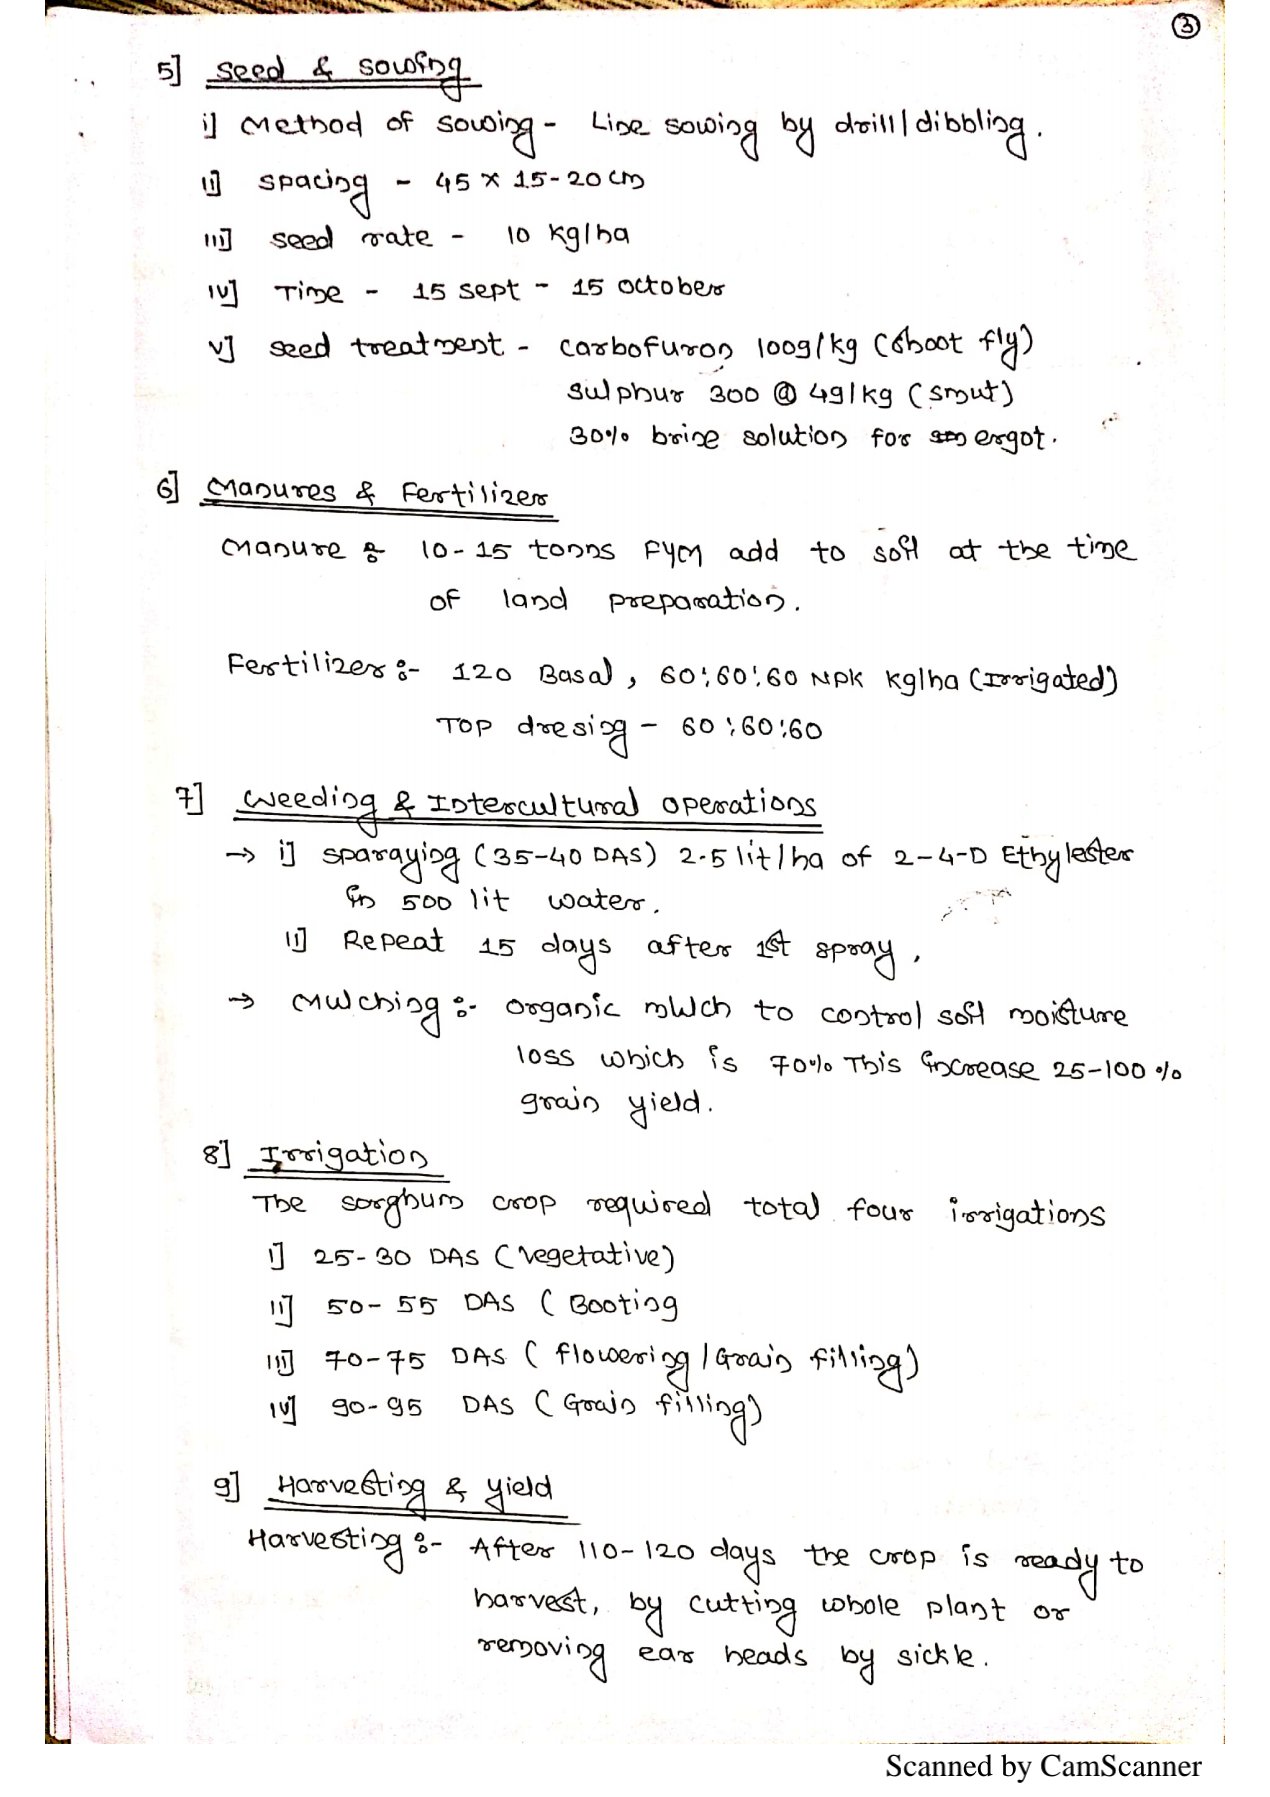 ③
5] Seed & Sowing
i] Method of sowing - Line sowing by drill/dibbling.
ii] Spacing - 45 x 15-20 cm
iii] Seed rate - 10 kg/ha
iv] Time - 15 sept - 15 october
v] Seed treatment - carbofuron 100g/kg (Shoot fly)
Sulphur 300 @ 4g/kg (smut)
30% brine solution for ergot.
6] Manures & Fertilizer
Manure :- 10-15 tonns FYM add to soil at the time
of land preparation.
Fertilizer :- 120 Basal, 60:60:60 NPK kg/ha (Irrigated)
Top dresing - 60:60:60
7] Weeding & Intercultural operations
→ i] Sparaying (35-40 DAS) 2.5 lit/ha of 2-4-D Ethylester
in 500 lit water.
ii] Repeat 15 days after 1st spray.
→ Mulching :- Organic mulch to control soil moisture
loss which is 70% This increase 25-100 %
grain yield.
8] Irrigation
The sorghum crop required total four irrigations
i] 25-30 DAS (Vegetative)
ii] 50-55 DAS (Booting
iii] 70-75 DAS (flowering/Grain filling)
iv] 90-95 DAS (Grain filling)
9] Harvesting & yield
Harvesting :- After 110-120 days the crop is ready to
harvest, by cutting whole plant or
removing ear heads by sickle.
Scanned by CamScanner